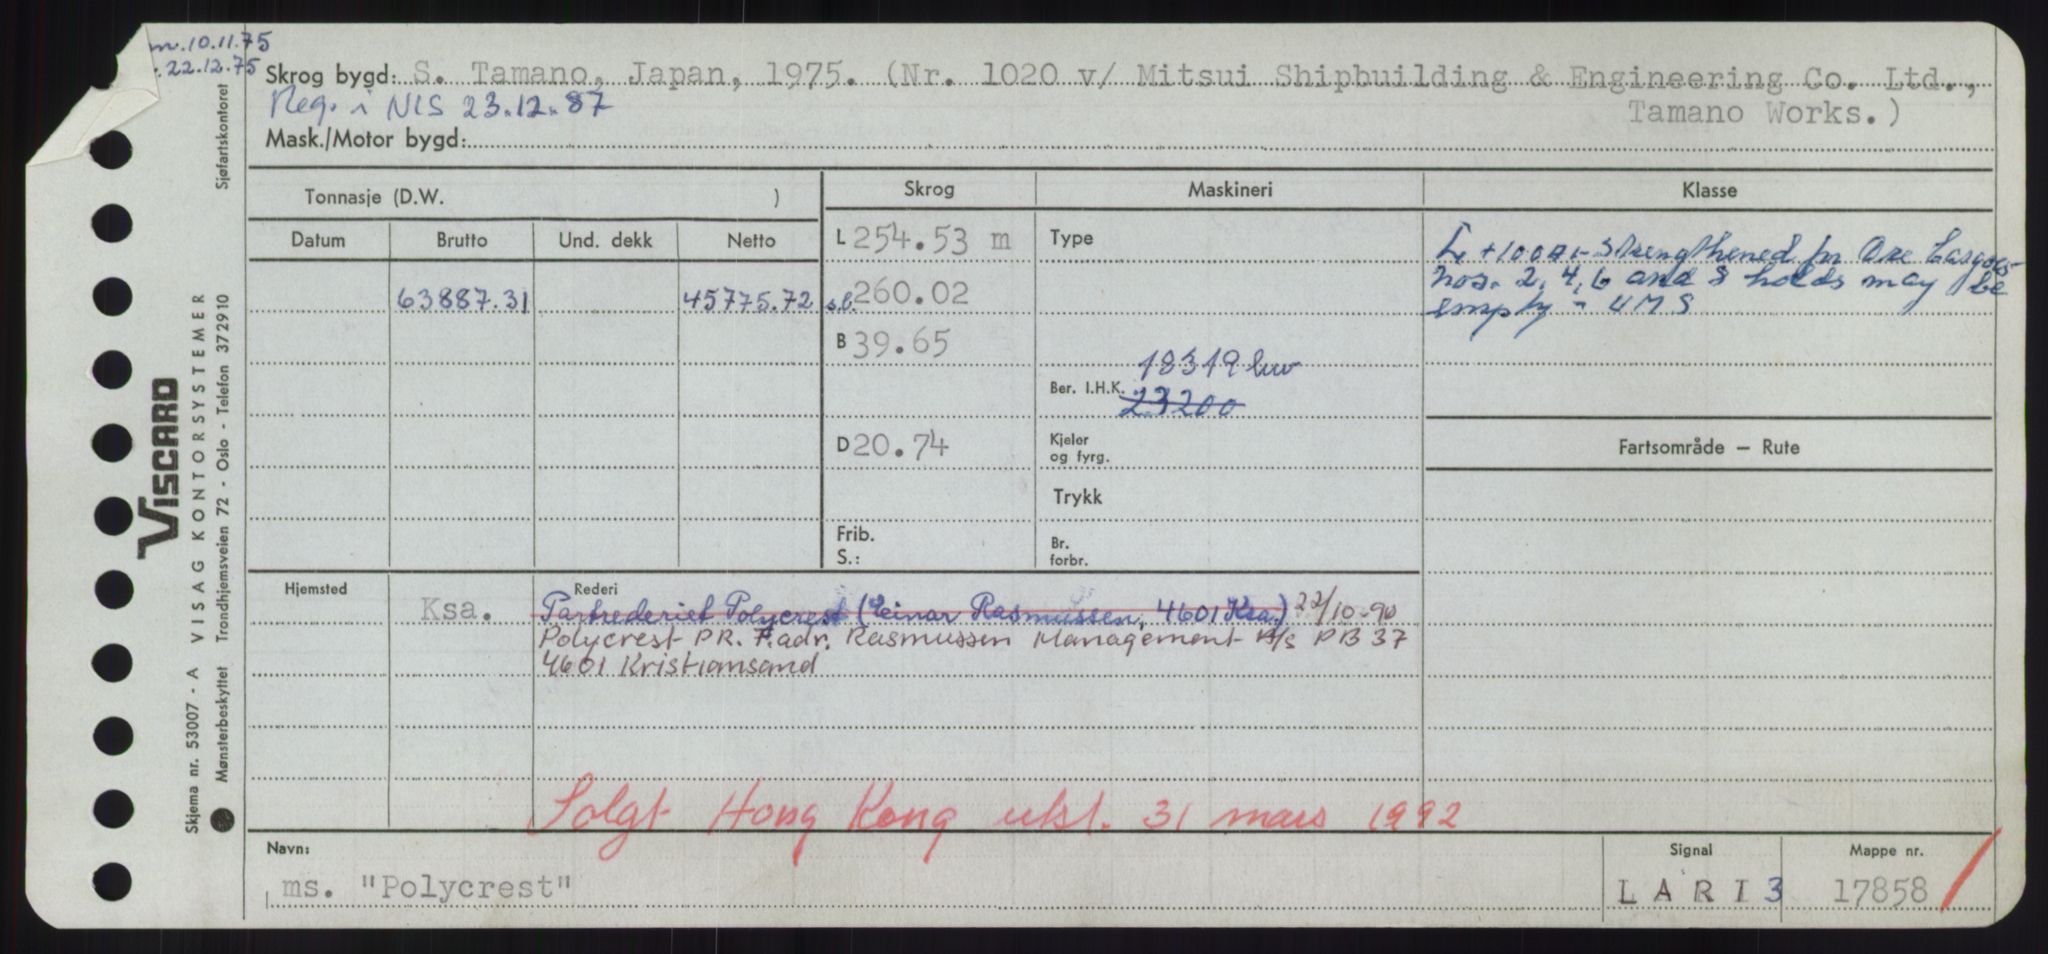 .10.11.75
. 22.12.75
Skrog bygd: S. Tamano, Japan, 1975. (Nr. 1020 v/ Mitsui Shipbuilding & Engineering Co. Ltd.,
Reg. i NIS 23.12.87
Tamano Works.)
Mask./Motor bygd:
Tonnasje (D.W. )
Skrog
Maskineri
Klasse
Datum
Brutto
Und. dekk
Netto
63887.31
45775.72
L 254.53 m
s.l. 260.02
B 39.65
D 20.74
Frib.
S.:
Type
18319 kw
Ber. I.H.K. 23200
Kjeler
og fyrg.
Trykk
Br.
forbr.
+100A1 - Strengthened for Ore Cargoes
nos. 2, 4, 6 and 8 holds may be
empty - UMS
Fartsområde — Rute
Hjemsted
Ksa.
Rederi
Partrederiet Polycrest (Einar Rasmussen, 4601 Ksa.) 22/10-90
Polycrest PR. F.adr. Rasmussen Management A/S PB 37
4601 Kristiansand
Solgt Hong Kong utsl. 31 mars 1992
Navn:
ms. "Polycrest"
Signal
LARI3
Mappe nr.
17858
VISCARD
VISAG KONTORSYSTEMER
Skjema nr. 53007 - A
Mønsterbeskyttet
Trondhjemsveien 72 - Oslo - Telefon 372910
Sjøfartskontoret